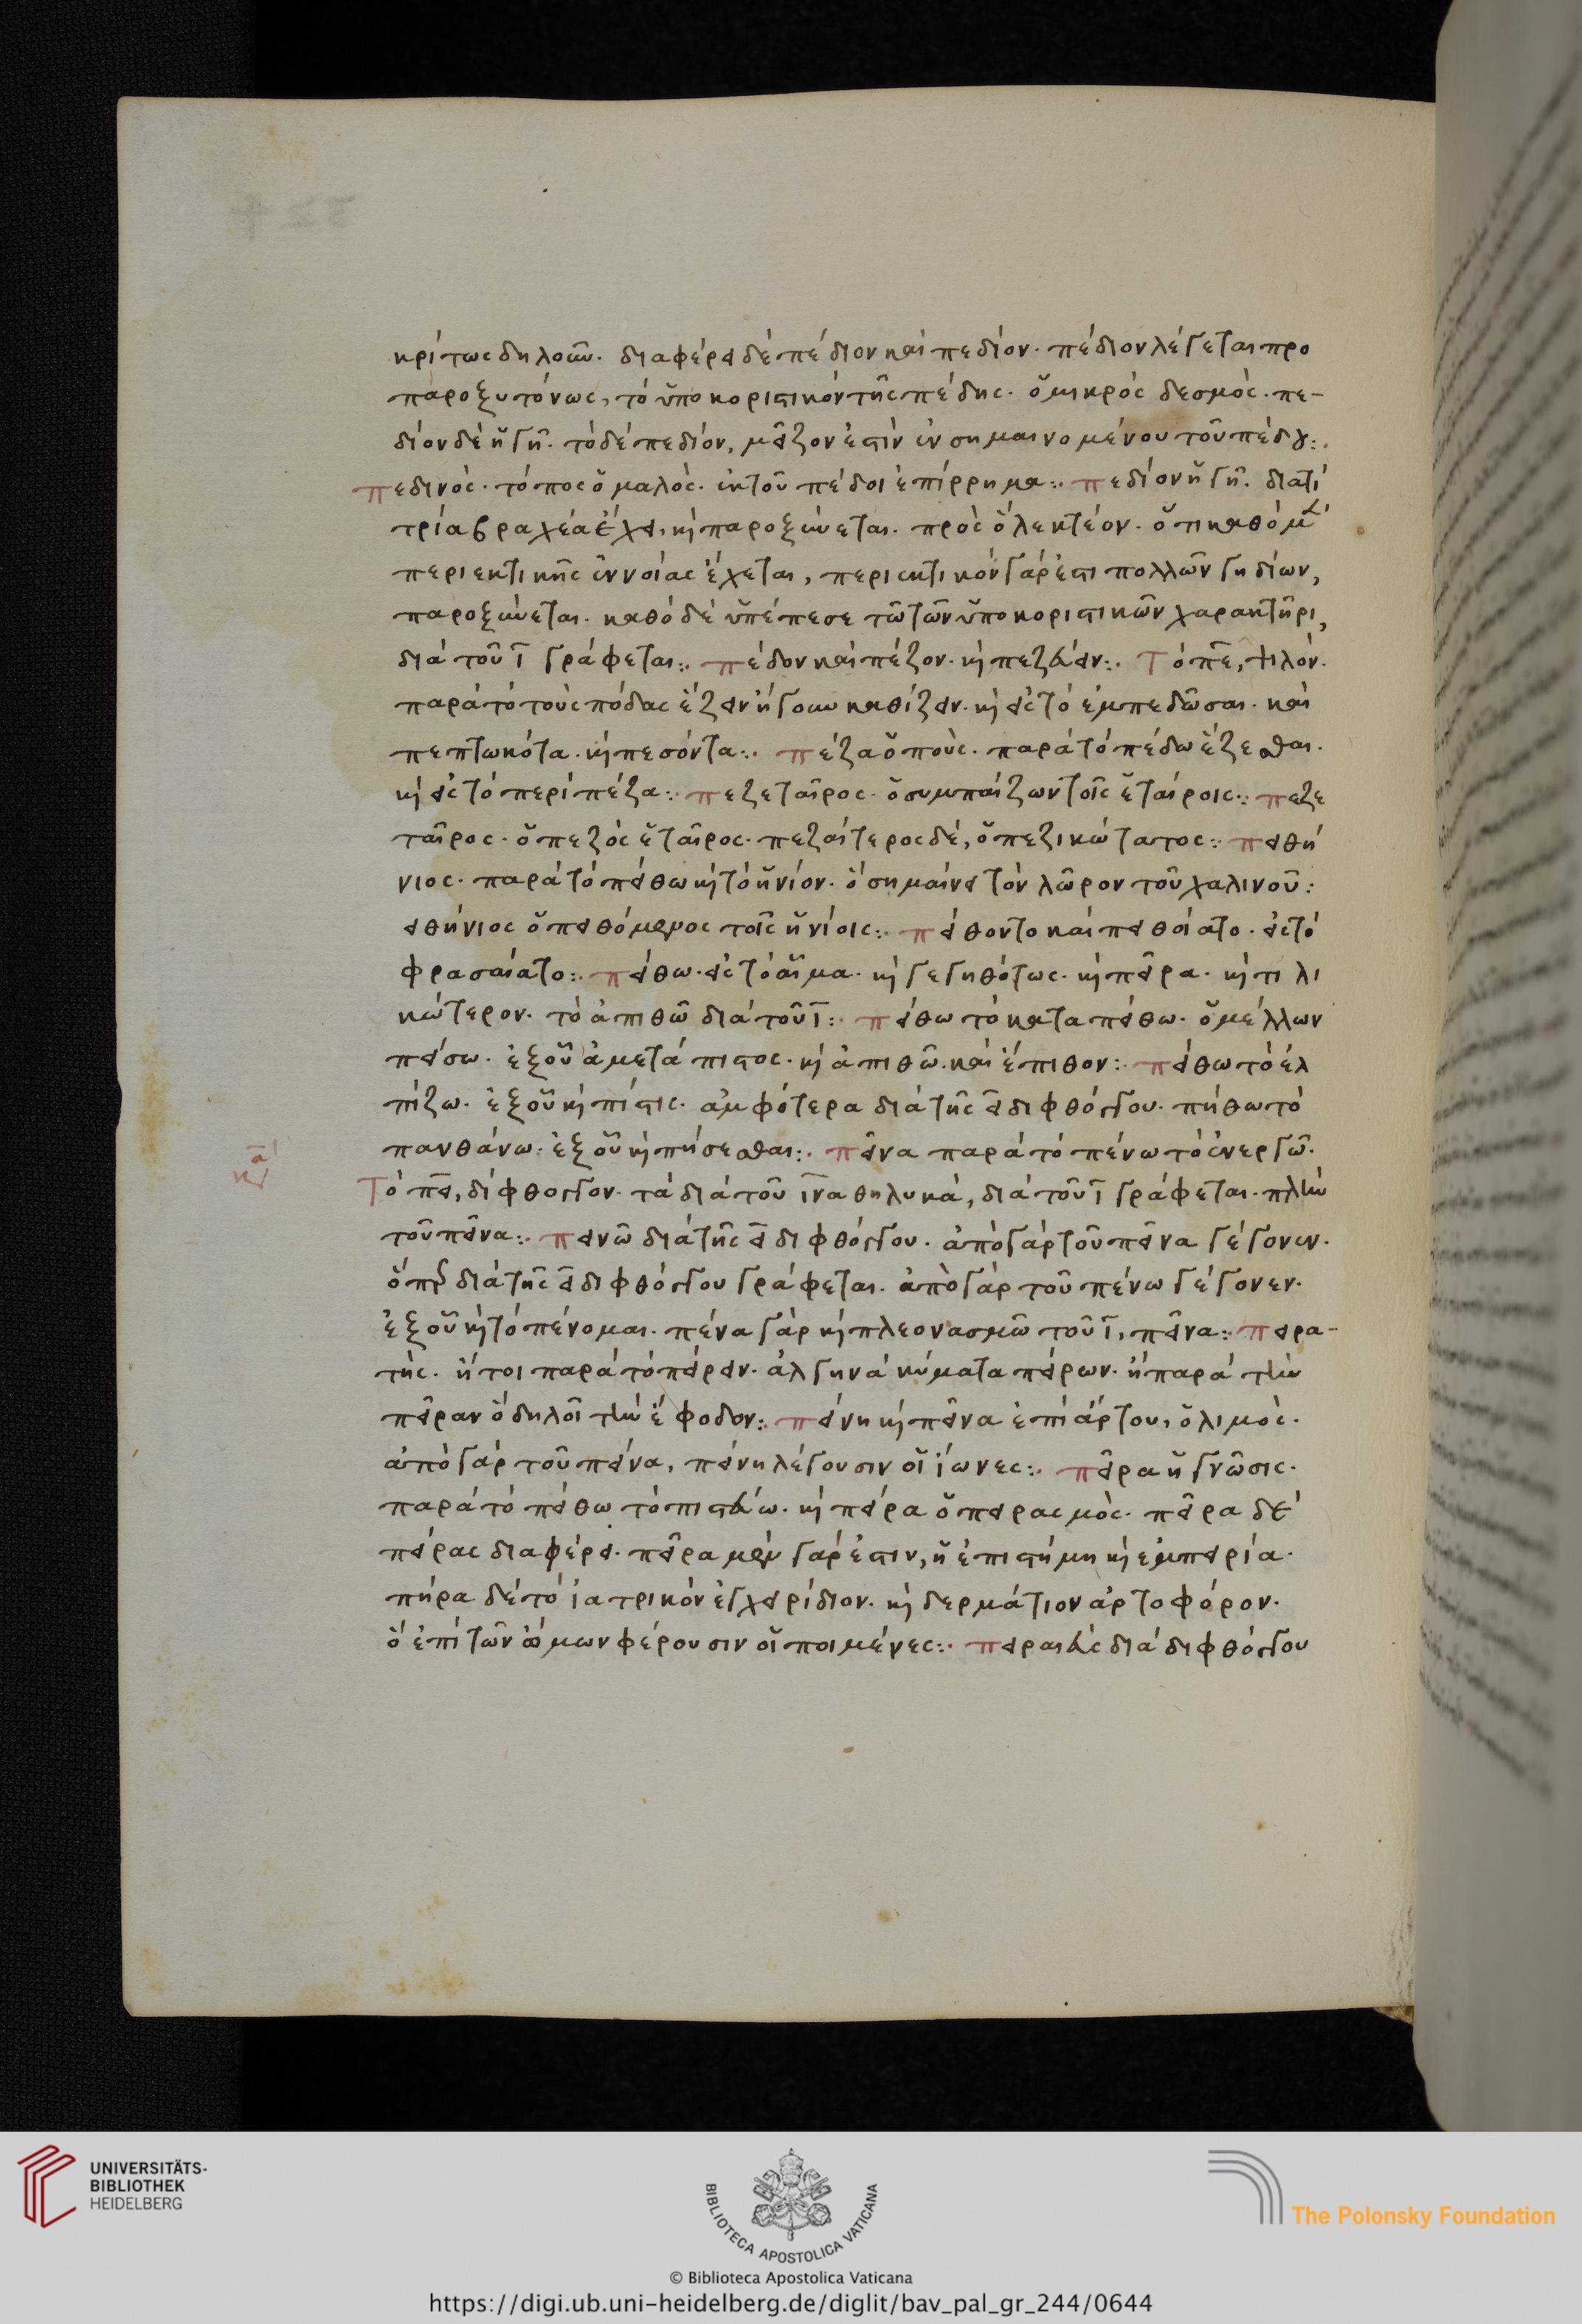 κρίτως δηλοῦν. διαφέρει δὲ πέδιον καὶ πεδίον. πέδιον λέγεται προ
παροξυτόνως, τὸ ὑποκοριστικὸν τῆς πέδης. ὁ μικρὸς δεσμός. πε-
δίον δὲ ἡ γῆ. τὸ δὲ πεδίον, μεῖζον ἐστὶν ἐν σημαινομένου τοῦ πέδου:.
πεδινός. τόπος ὁμαλός. ἐκ τοῦ πέδοι ἐπίρρημα:. πεδίον ἡ γῆ. διατί
τρία βραχέα ἔχει, κὶ παροξύνεται. πρὸς ὃ λεκτέον. ὅτι καθὸ μ
περιεκτικῆς ἐννοίας ἔχεται, περιεκτικὸν γάρ ἐστι πολλῶν γηδίων,
παροξύνεται. καθὸ δὲ ὑπέπεσε τῶ τῶν ὑποκοριστικῶν χαρακτῆρι,
διὰ τοῦ ῑ γράφεται:. πέδον καὶ πέζον. κὶ πεζεύειν:. Τὸ πε, ψιλόν.
παρὰ τὸ τοὺς πόδας ἕζειν ἤγουν καθίζειν. κὶ εἰς τὸ ἐμπεδῶσαι. καὶ
πεπτωκότα. κὶ πεσόντα:. πέζα ὁ πούς. παρὰ τὸ πέδω ἕζεσθαι.
κὶ εἰς τὸ περίπεζα:. πεζεταῖρος. ὁ συμπαίζων τοῖς ἑταίροις:. πεζε
ταῖρος. ὁ πεζὸς ἑταῖρος. πεζαίτερος δὲ, ὁ πεζικώτατος:. πειθή
νιος. παρὰ τὸ πείθω κὶ τὸ ἡνίον. ὃ σημαίνει τὸν λῶρον τοῦ χαλινοῦ:
ειθήνιος ὁ πειθόμενος τοῖς ἡνίοις:. πείθοντο καὶ πειθοίατο. εἰς τὸ
φρασαίατο:. πείθω. εἰς τὸ αἷμα. κὶ γεγηθότως. κὶ πεῖρα. κὶ τι λι
κώτερον. τὸ ἀπιθῶ διὰ τοῦ ῑ:. πείθω τὸ καταπείθω. ὁ μέλλων
πείσω. ἐξ οὗ ἀμετάπιστος. κὶ ἀπιθῶ. καὶ ἔπιθον:. πείθω τὸ ἐλ
πίζω. ἐξ οὗ κὶ πίστις. ἀμφότερα διὰ τῆς ει διφθόγγου. πήθω τὸ
πανθάνω: ἐξ οὗ κὶ πήσεσθαι:. πεῖνα παρὰ τὸ πένω τὸ ἐνεργῶ.
Τὸ πει, δίφθογγον. τὰ διὰ τοῦ ινα θηλυκὰ, διὰ τοῦ ῑ γράφεται. πλὴν
τοῦ πεῖνα:. πεινῶ διὰ τῆς ει διφθόγγου. ἀπὸ γὰρ τοῦ πεῖνα γέγονεν.
ὅπερ διὰ τῆς ει διφθόγγου γράφεται. ἀπὸ γὰρ τοῦ πένω γέγονεν.
ἐξ οὗ κὶ τὸ πένομαι. πένα γὰρ κὶ πλεονασμῶ τοῦ ῑ, πεῖνα:. πειρα-
τής. ἤτοι παρὰ τὸ πείρειν. ἀλγηνὰ κύματα πείρων. ἢ παρὰ τὴν
πεῖραν ὃ δηλοῖ τὴν ἔφοδον:. πείνη κὶ πεῖνα ἐπὶ ἄρτου, ὁ λιμός.
ἀπὸ γὰρ τοῦ πείνα, πείνη λέγουσιν οἱ ἴωνες:. πεῖρα ἡ γνῶσις.
παρὰ τὸ πείθω τὸ πιστεύω. κὶ πείρα ὁ πειρασμός. πεῖρα δὲ
πείρας διαφέρει. πεῖρα μὲν γάρ ἐστιν, ἡ ἐπιστήμη κὶ ἐμπειρία.
πήρα δὲ τὸ ἰατρικὸν ἐγχειρίδιον. κὶ δερμάτιον ἀρτοφόρον.
ὃ ἐπὶ τῶν ὤμων φέρουσιν οἱ ποιμένες:. πειραιεὺς διὰ διφθόγγου
UNIVERSITÄTS-
BIBLIOTHEK
HEIDELBERG
BIBLIOTECA APOSTOLICA VATICANA
The Polonsky Foundation
© Biblioteca Apostolica Vaticana
https://digi.ub.uni-heidelberg.de/diglit/bav_pal_gr_244/0644